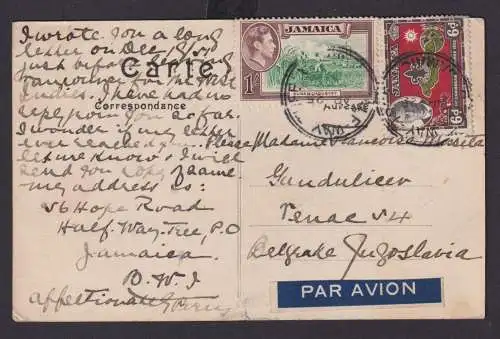 I wrote you a long
letter on Dec
just before
Vancouver for the West
Indies. I have had no
reply from you so far.
I wonder if my letter
ever reached you. Please
let me know & I will
send you copy of same.
my address is:
56 Hope Road
Half-Way-Tree, P.O
Jamaica
B.W.I
affectionately
Carte
Correspondance
JAMAICA
1/-
JAMAICA
6d
6d
Madame Françoise
Gundulicev
Venac 54
Belgrade Jugoslavia
PAR AVION